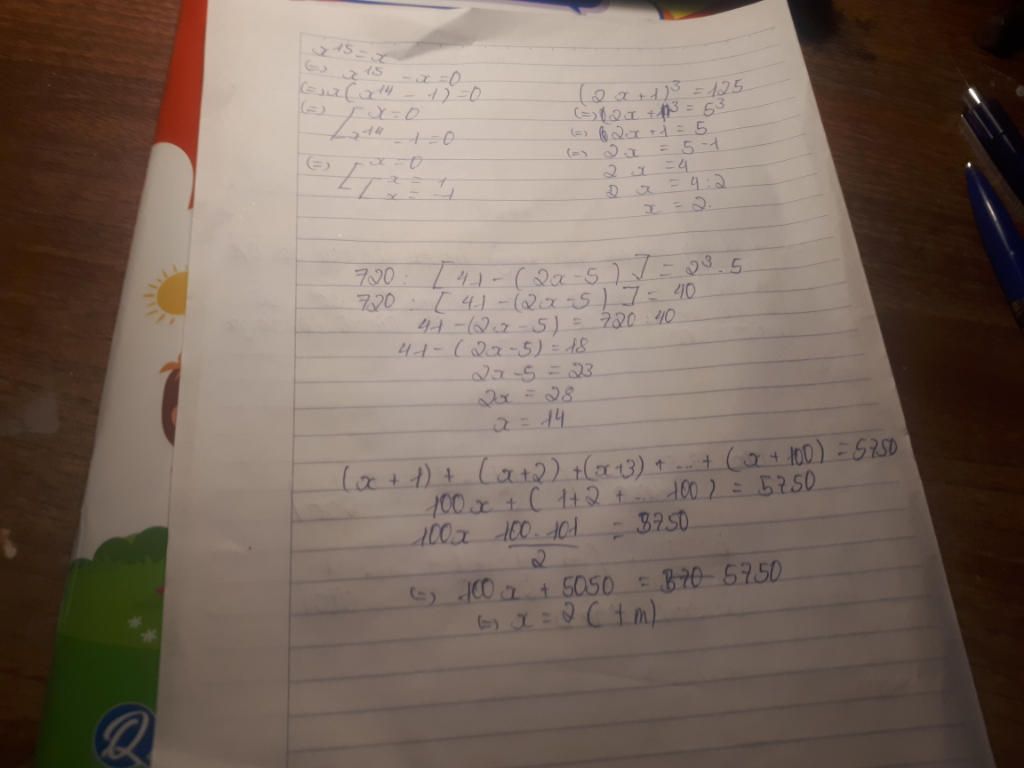 x¹⁵ = x
(=) x¹⁵ - x = 0
(=) x(x¹⁴ - 1) = 0
(=) [ x = 0
x¹⁴ - 1 = 0
(=) [ x = 0
[ x = 1
x = -1
(2x+1)³ = 125
(=) (2x+1)³ = 5³
(=) 2x+1 = 5
(=) 2x = 5-1
2x = 4
x = 4:2
x = 2
720 : [41 - (2x-5)] = 2³.5
720 : [41 - (2x-5)] = 40
41 - (2x-5) = 720:40
41 - (2x-5) = 18
2x-5 = 23
2x = 28
x = 14
(x+1) + (x+2) + (x+3) + ... + (x+100) = 5750
100x + (1+2+...100) = 5750
100x 100.101 = 5750
2
(=) 100x + 5050 = 5750
(=) x = 2 (tm)
Q